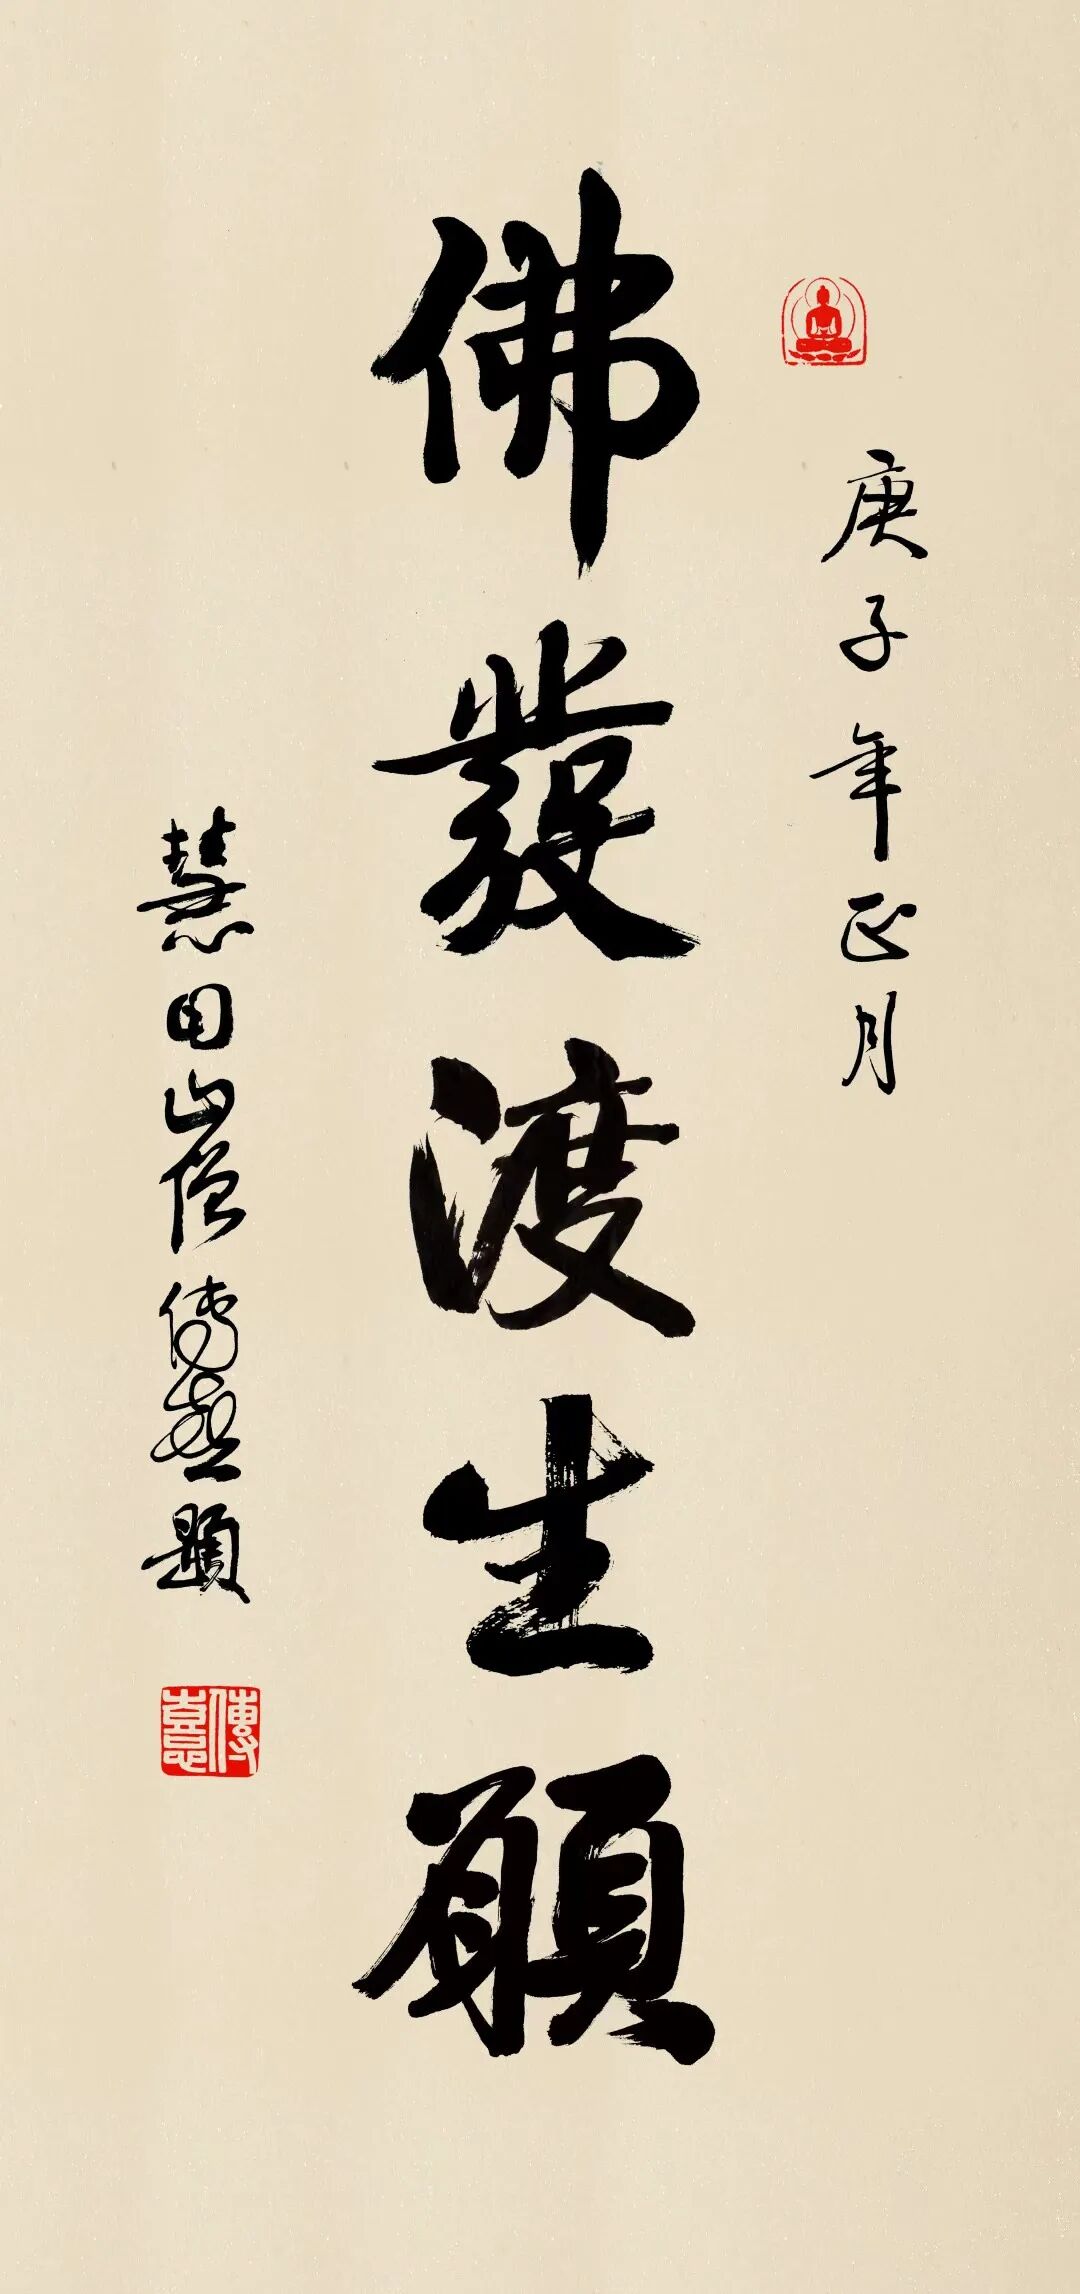 庚子年正月
佛發渡生願
慧田山僧傳喜題
傳喜